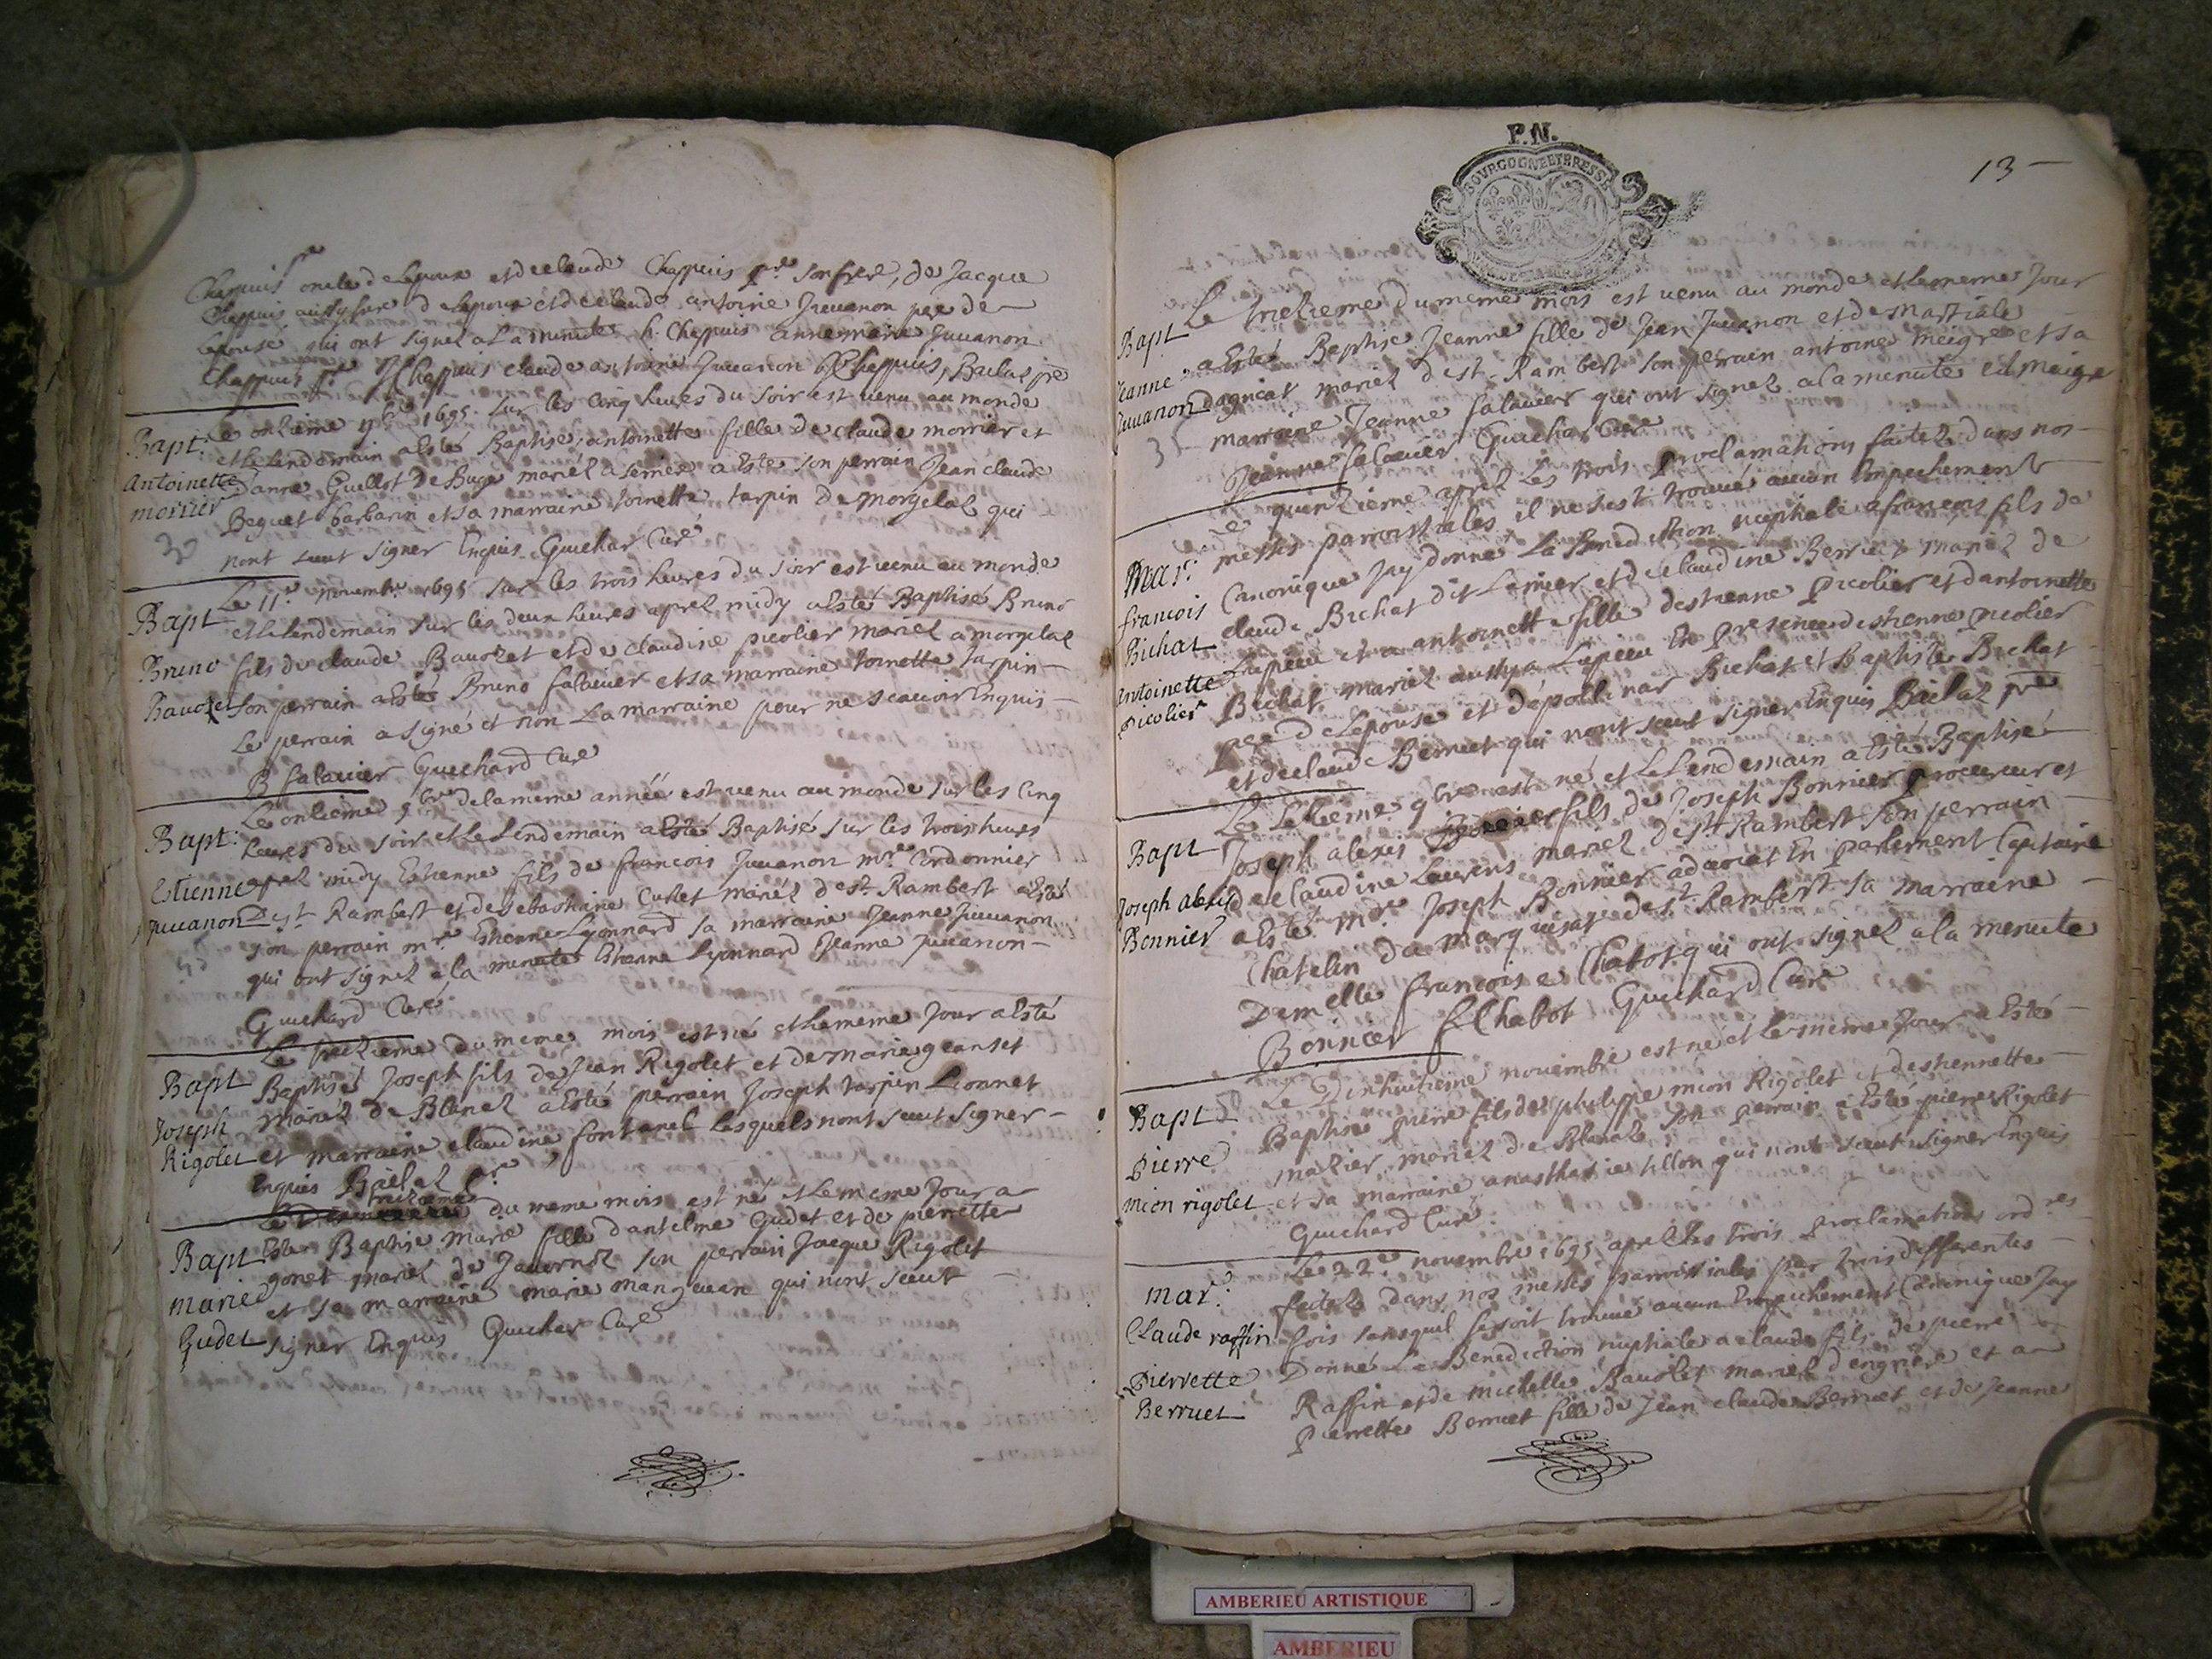 Chapuis pre oncle de Lepoux et de claude Chappuis pre son frere, de Jacque
Chappuis aussy frere de Lepoux et de claude antoine Juuanon pere de
Lepouse qui ont signez a La minute h. Chappuis annemarie Juuanon
Chappuis pre J Chappuis claude antoine Juuanon Chappuis, Bailat pre
Bapt:
antoinette
morrier
30
Le onzieme 9bre 1695 sur les cinq heures du soir est venu au monde
et Le lendemain a esté Baptisé, antoinette fille de claude morrier et
danne Guillot De Buge mariez a serrier a este son perrain Jean claude
Beguet barbarin et sa marraine toinette tarpin De morgelaz qui
nont sceut signer Enquis Guichar Curé
Bapt
Bruno
Bauozet
Le 11e novembre 1695 sur les trois heures du soir est venu au monde
et Le lendemain sur les deux heures aprez midy a esté Baptisé Bruno
fils de claude Bauozet et de claudine picolier mariez a morgelaz
son perrain a esté Bruno salauier et sa marraine toinette tarpin
Le perrain a signé et non La marraine pour ne scauoir Enquis
B salauier Guichard Curé
Bapt:
Estienne
Juuanon
Le onzieme 9bre de la meme année est venu au monde sur les Cinq
heures du soir et Le Lendemain a esté Baptisé sur les trois heures
aprez midy Estienne fils de francois Juuanon mre Cordonnier
de st Rambert et de sebastiaine Cuzet mariez de st Rambert a esté
son perrain mre Estienne Lyonnard sa marraine Jeanne Juuanon
qui ont signez a la minute Estienne Lyonnard Jeanne Juuanon
Guichard Curé
Bapt
Joseph
Rigolet
Le treizieme du meme mois est né et le meme Jour a esté
Baptisé Joseph fils de Jean Rigolet et de marie geanset
mariez de Blanaz a esté perrain Joseph tarpin Lionnet
et marraine claudine fontanel Lesquels nont sceut signer
Enquis Bailat pre
Bapt
marie
Gudet
Le treizieme du meme mois est né et Le meme Jour a
este Baptise marie fille dantelme Gudet et de pierrette
gonet mariez de Jauornoz son perrain Jacque Rigolet
et sa marraine marie mangauan qui nont sceut
signer Enquis Guichar Curé
P.N.
BOVRGOGNE ET BRESSE
13
Bapt
Jeanne
Juuanon
Le treizieme du meme mois est venu au monde et le meme Jour
a esté Baptise Jeanne fille de Jean Juuanon et de martiale
dagnicat mariez de st Rambert son perrain antoine meigre et sa
marraine Jeanne salauier qui ont signez a la menute A meigre
Jeanne salauier Guichar Cure
Mar:
francois
Bichat
antoinette
picolier
Le quinzieme aprez Les trois proclamations faitez dans nos
messes parroissiales il ne sest trouué aucun Empechement
Canonique Jay donné La Benediction nuptiale a françois fils de
claude Bichat dit Lesnier et de claudine Berruet mariez de
Lupieu et a antoinette fille destienne Picolier et dantoinette
Bichat mariez aussy a Lupieu En presence destienne picolier
pere de Lepouse et dapollinar Bichat et Baptiste Bichat
et de claude Berruet qui nont sceut signer Enquis Bailat pre
Bapt
Joseph alexis
Bonnier
Le sezieme 9bre est né et Le Lendemain a este Baptisé
Joseph alexis Bonnier fils de Joseph Bonnier procureur et
de claudine Laurens mariez de st Rambert son perrain
a esté mre Joseph Bonnier aduocat En parlement Capitaine
Chatelin du marquisat de st Rambert sa marraine
Damelle francoise Chabot qui ont signez a la menute
Bonnier f Chabot Guichard Cure
Bapt
Pierre
mion rigolet
Le Dixhuitieme nouembre est né et Le meme Jour a Esté
Baptise pierre fils de philippe mion Rigolet et destiennette
mazier mariez de Blanaz son perrain a Esté pierre Rigolet
et sa marraine anasthasie tillon qui nont sceut signer Enquis
Guichard Curé
Mar:
Claude raffin
Pierrette
Berruet
Le 22e novembre 1695 aprez les trois proclamations ordres
faitez dans nos messes parroissiales par trois differentes
fois sans quil se soit trouué aucun Empechement Canonique Jay
Donné La Benediction nuptiale a claude fils de pierre
Raffin et de michelle Bauozet mariez dengriere et a
Pierrette Berruet fille de Jean claude Berruet et de Jeanne
AMBERIEU ARTISTIQUE
AMBERIEU